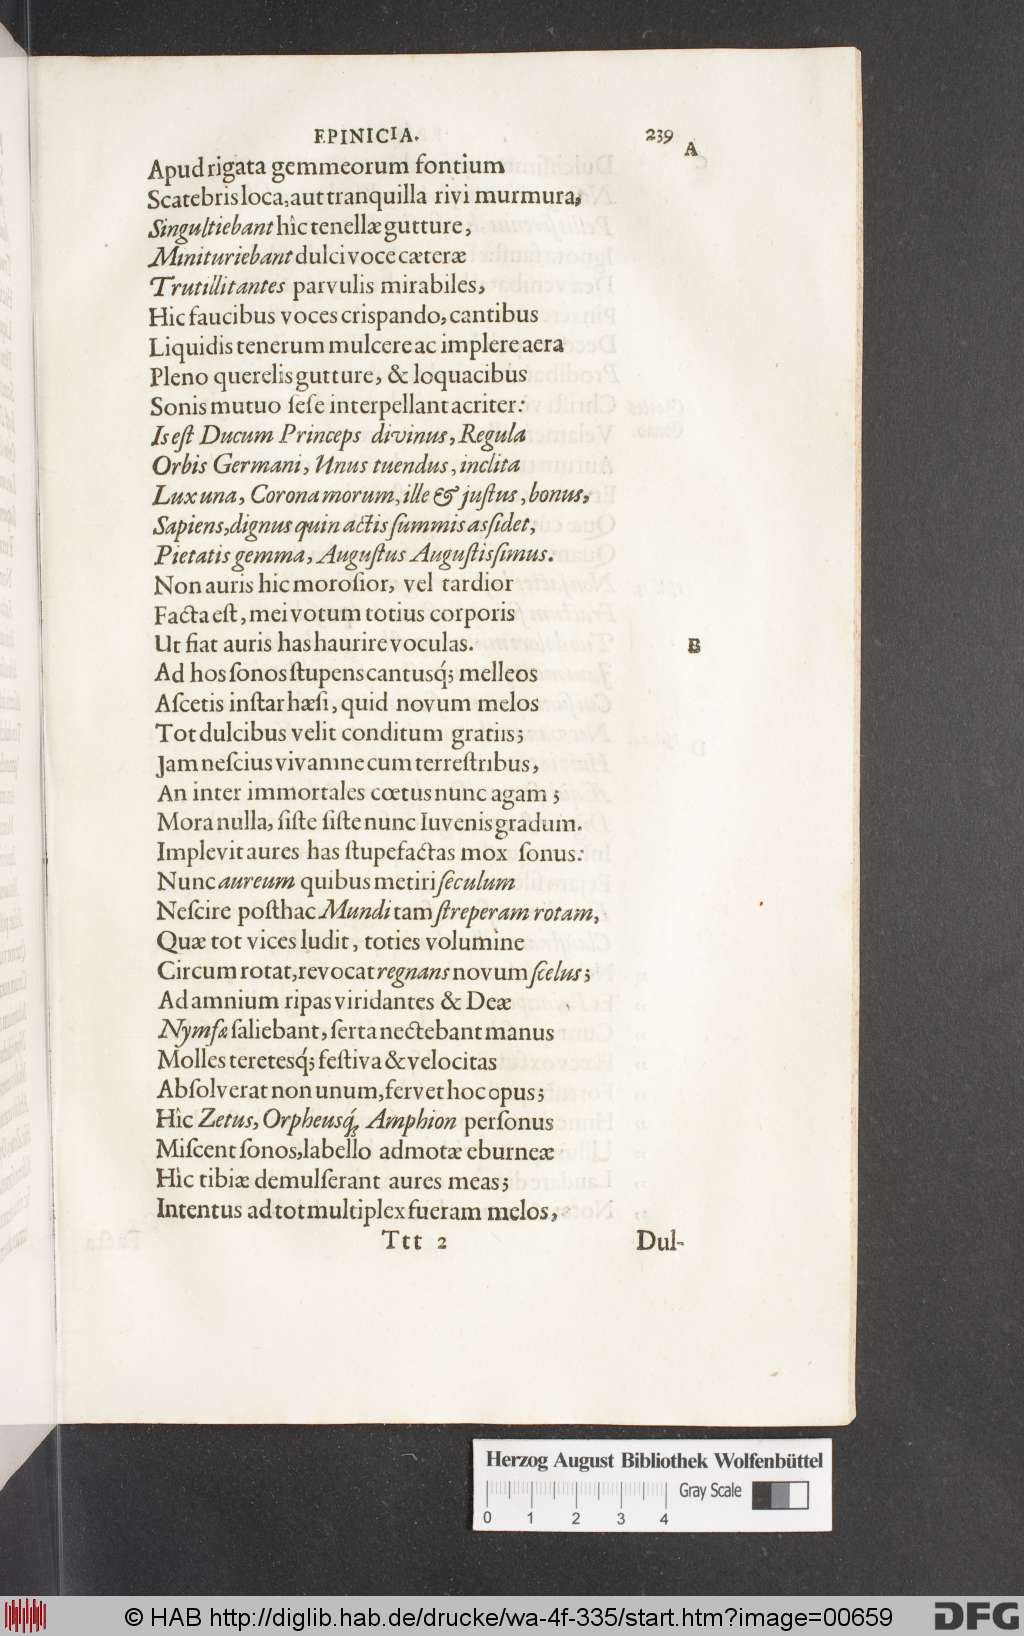 EPINICIA. 239
A
Apud rigata gemmeorum fontium
Scatebris loca, aut tranquilla rivi murmura,
Singultiebant hîc tenellæ gutture,
Minituriebant dulci voce cæteræ
Trutillitantes parvulis mirabiles,
Hic faucibus voces crispando, cantibus
Liquidis tenerum mulcere ac implere aera
Pleno querelis gutture, & loquacibus
Sonis mutuo ſeſe interpellant acriter:
Is eſt Ducum Princeps divinus, Regula
Orbis Germani, Unus tuendus, inclita
Lux una, Corona morum, ille & juſtus, bonus,
Sapiens, dignus quin actis ſummis asſidet,
Pietatis gemma, Auguſtus Auguſtisſimus.
Non auris hic moroſior, vel tardior
Facta eſt, mei votum totius corporis
Ut fiat auris has haurire voculas.
B
Ad hos ſonos ſtupens cantusq́; melleos
Aſcetis inſtar hæſi, quid novum melos
Tot dulcibus velit conditum gratiis;
Jam neſcius vivamne cum terreſtribus,
An inter immortales cœtus nunc agam ;
Mora nulla, ſiſte ſiſte nunc Iuvenis gradum.
Implevit aures has ſtupefactas mox ſonus:
Nunc aureum quibus metiri ſeculum
Neſcire poſthac Mundi tam ſtreperam rotam,
Quæ tot vices ludit, toties volumine
Circum rotat, revocat regnans novum ſcelus;
Ad amnium ripas viridantes & Deæ
Nymfæ ſaliebant, ſerta nectebant manus
Molles teretesq́; feſtiva & velocitas
Abſolverat non unum, fervet hoc opus;
Hîc Zetus, Orpheusq́; Amphion perſonus
Miſcent ſonos, labello admotæ eburneæ
Hìc tibiæ demulſerant aures meas;
Intentus ad tot multiplex fueram melos,
Ttt 2 Dul-
Herzog August Bibliothek Wolfenbüttel
Gray Scale
0 1 2 3 4
© HAB http://diglib.hab.de/drucke/wa-4f-335/start.htm?image=00659
DFG